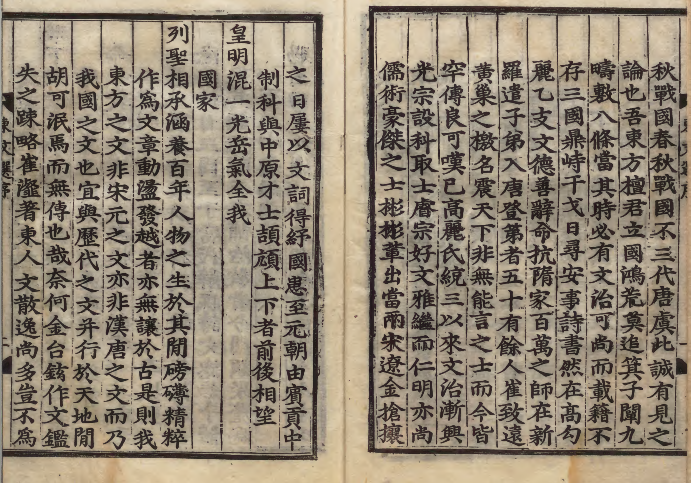 秋戰國春秋戰國不三代唐虞此誠有見之
論也吾東方檀君立國鴻荒莫追箕子闡九
疇敷八條當其時必有文治可尚而載籍不
存三國鼎峙干戈日尋安事詩書然在高勾
麗乙支文德善辭命抗隋家百萬之師在新
羅遣子弟入唐登第者五十有餘人崔致遠
黃巢之檄名震天下非無能言之士而今皆
罕傳良可嘆已高麗氏統三以來文治漸興
光宗設科取士睿宗好文雅繼而仁明亦尚
儒術豪傑之士彬彬輩出當兩宋遼金搶攘
之日屢以文詞得紓國患至元朝由賓貢中
制科與中原才士頡頏上下者前後相望
皇明混一光岳氣全我
國家
列聖相承涵養百年人物之生於其間磅礴精粹
作爲文章動盪發越者亦無讓於古是則我
東方之文非宋元之文亦非漢唐之文而乃
我國之文也宜與歷代之文并行於天地間
胡可泯焉而無傳也哉奈何金台鉉作文鑑
失之踈略崔瀣著東人文散逸尚多豈不爲
東文選序